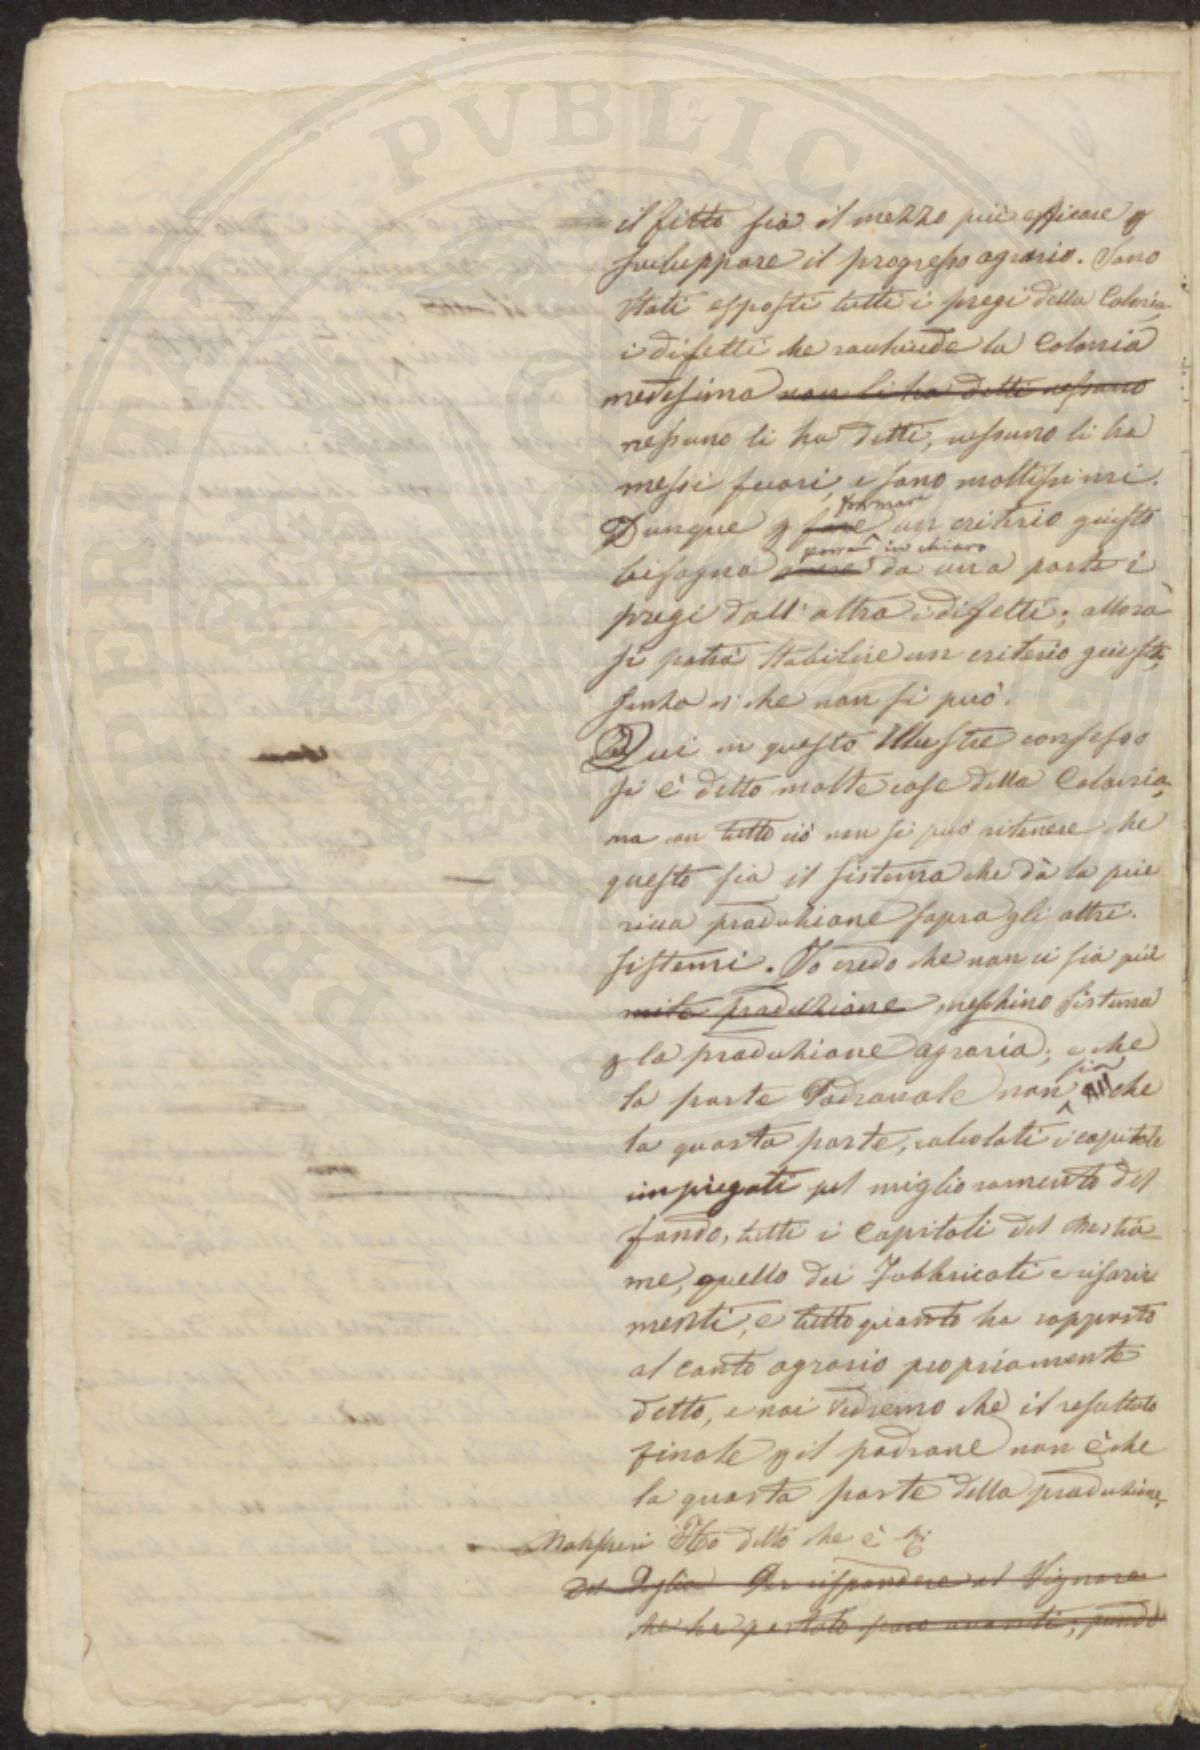 il fitto sia il mezzo più efficace p
sviluppare il progresso agrario. Sono
stati esposti tutti i pregi della Colonia,
i difetti che racchiude la Colonia
medesima non li ha detti nessuno
nessuno li ha detti, nessuno li ha
messi fuori, e sono moltissimi.
formare
Dunque p fare un criterio giusto
porre in chiaro
bisogna da una parte i
pregi dall'altra i difetti; allora
si potrà stabilire un criterio giusto,
senza di che non si può.
Qui in questo illustre consesso
si è detto molte cose della Colonia,
ma con tutto ciò non si può ritenere che
questo sia il sistema che dà la più
ricca produzione sopra gli altri
sistemi. Io credo che non ci sia più
mite produzione meschino sistema
p la produzione agraria; e che
sia
la parte Padronale non che
la quarta parte, calcolati i capitali
impiegati pel miglioramento del
fondo, tutti i Capitali del Bestia-
me, quello dei Fabbricati e risarci
menti, e tutto quanto ha rapporto
al conto agrario propriamente
detto, e noi vedremo che il resultato
finale p il padrone non è che
la quarta parte della produzione.
Ho detto che è
Del Puglia Per rispondere al Vignara
che ha parlato poco avanti,
PROSPERITATI PVBLICAE